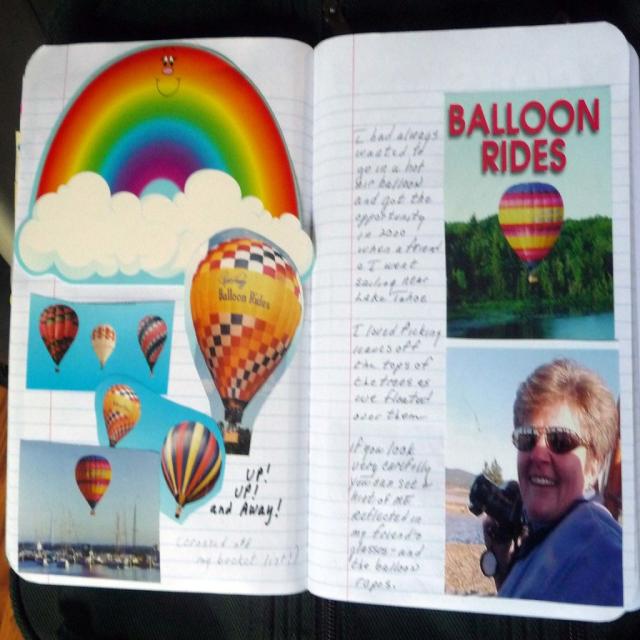 Balloon Rides
UP!
UP!
and Away!
crossed off
my bucket list!!
BALLOON
RIDES
I had always
wanted to
go in a hot
air balloon
and got the
opportunity
in 2000
when a friend
& I went
sailing near
Lake Tahoe
I loved Picking
leaves off
the tops of
the trees as
we floated
over them
If you look
very carefully
you can see a
hint of ME
reflected in
my friend's
glasses - and
the balloon
ropes.